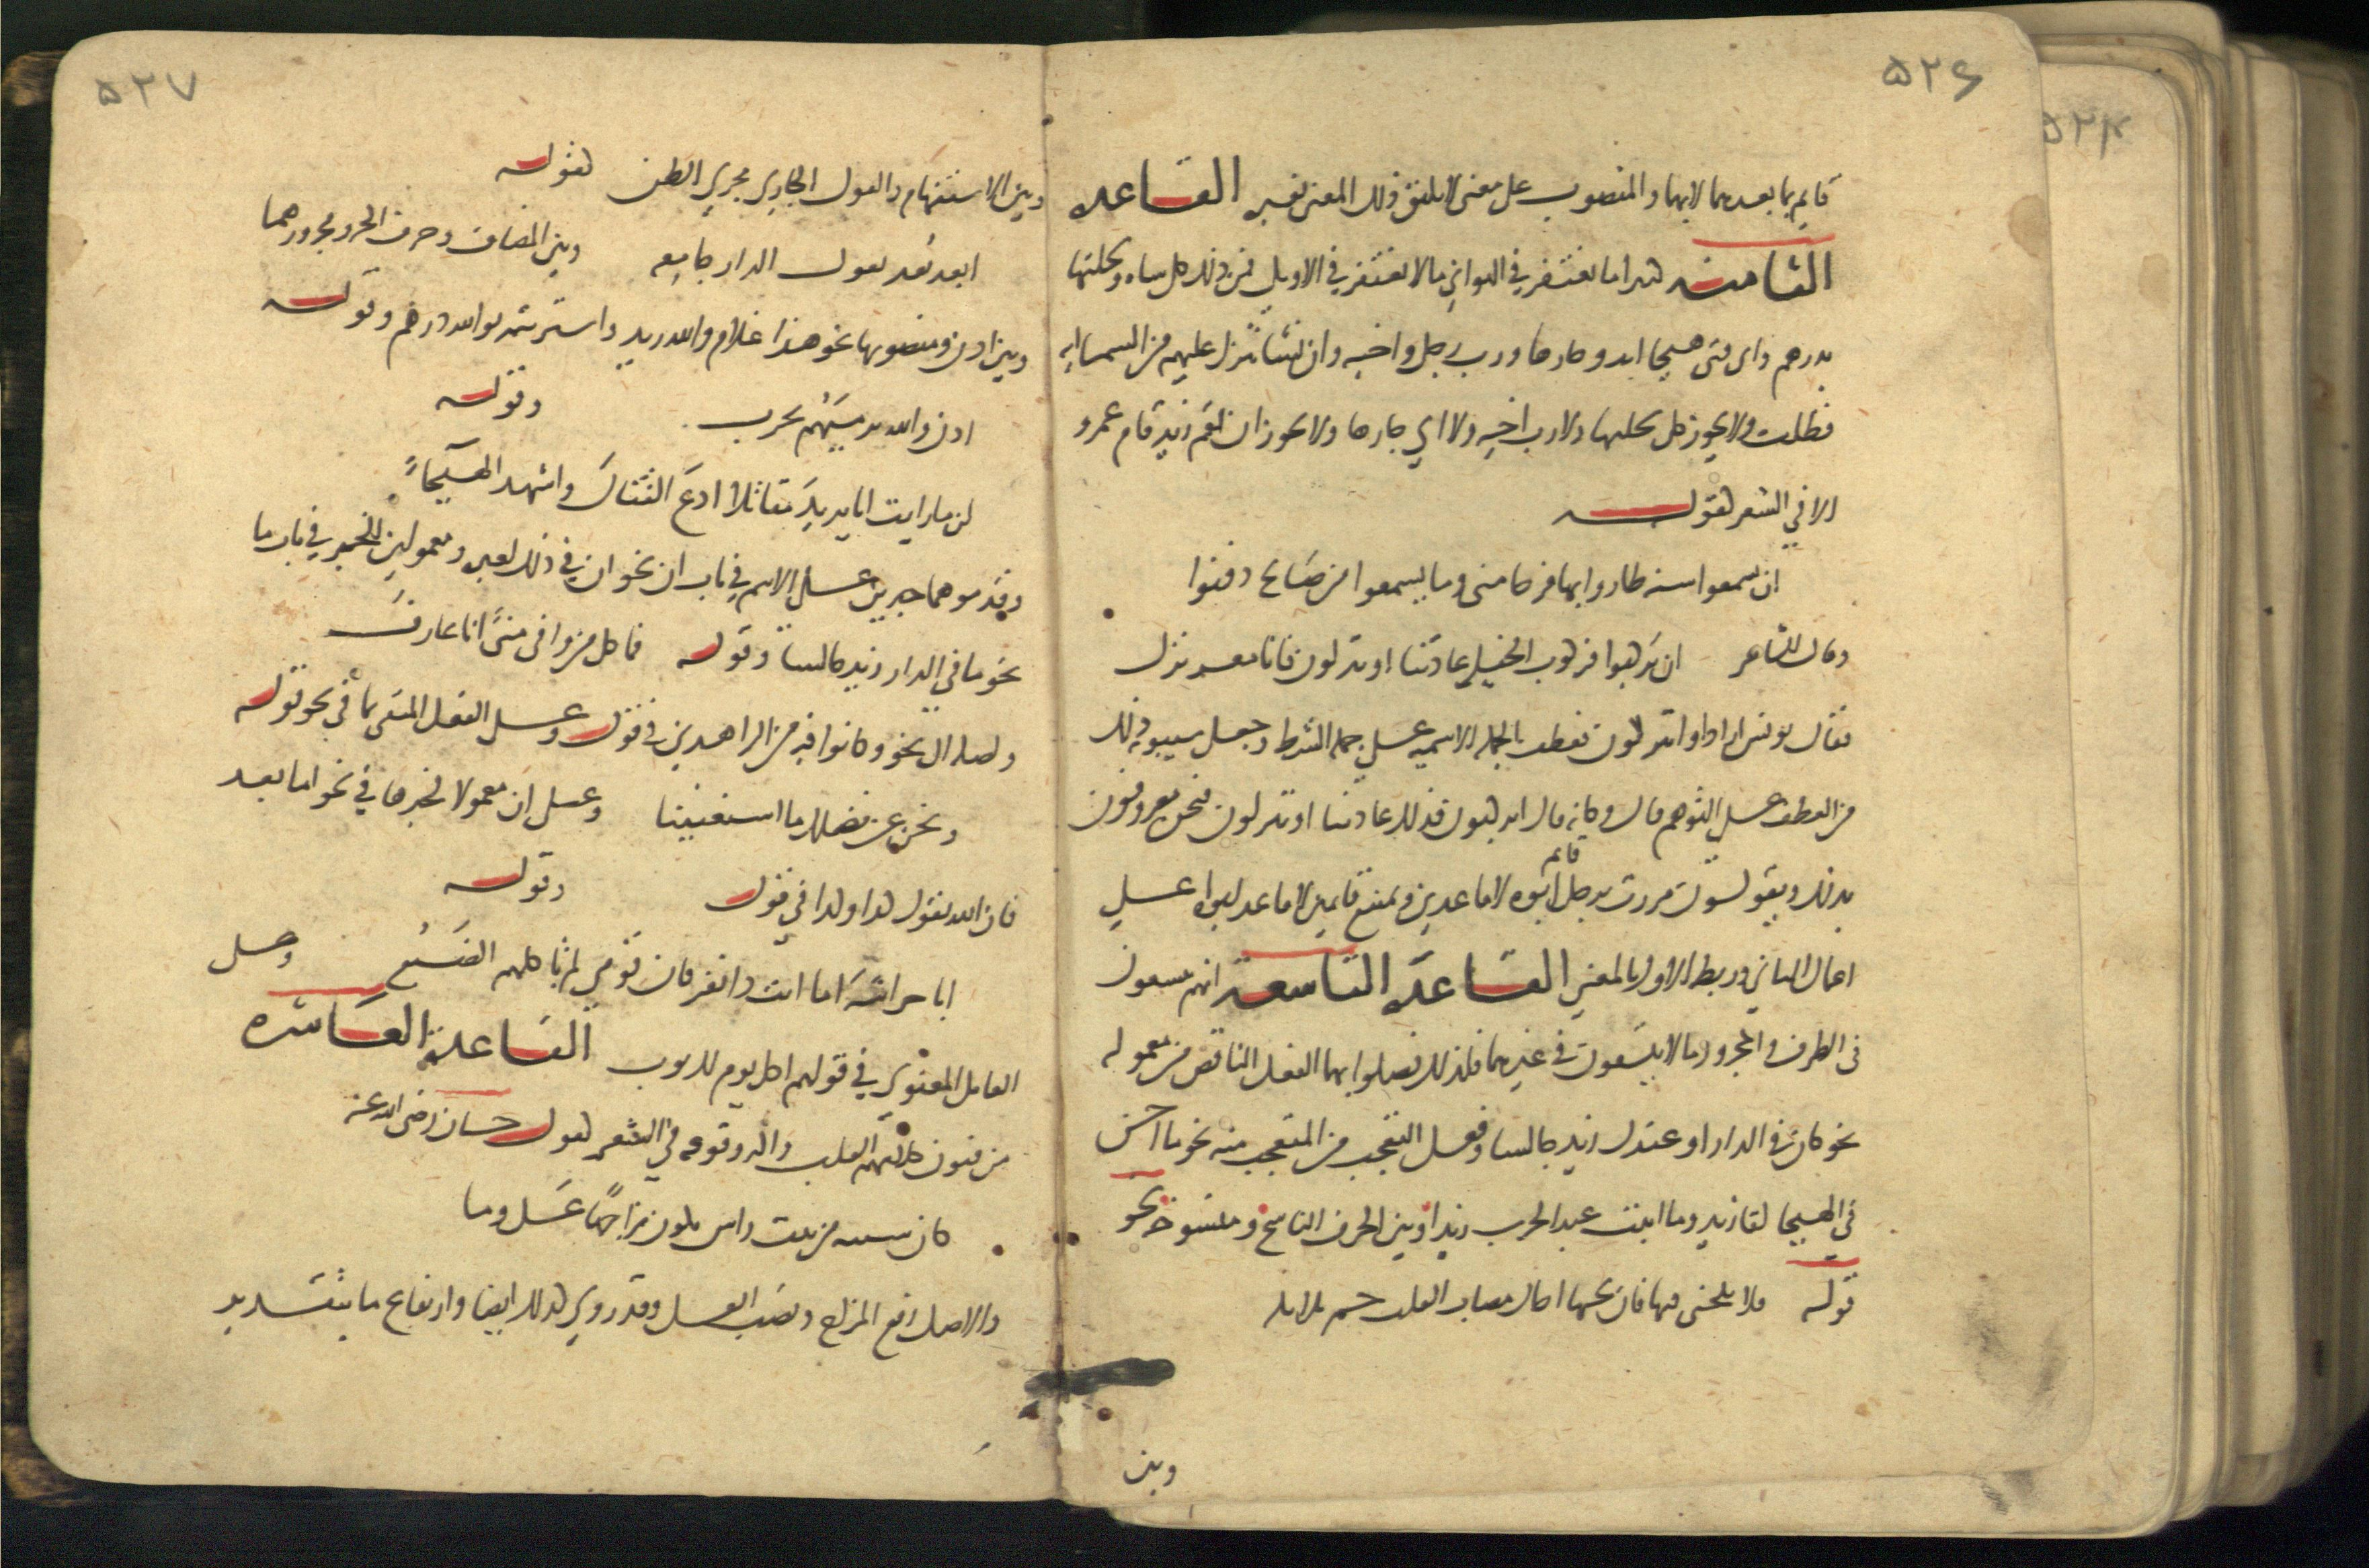 ٥٢٦
قايم بما بعدهما لابهما والمنصوب على معنى لا يليق ذلك المعنى بغيره القاعده
الثامنه كثيرا ما يغتفر في الثواني ما لا يغتفر في الاوايل فمن ذلك كل شاه وسخلتها
بدرهم واى فتى هيجا انت وجارها ورب رجل واخيه وان نشا ننزل عليهم من السما ايه
فظلت ولا يجوز كل سخلتها ولا رب اخيه ولا اي جارها ولا يجوز ان يقم زيد قام عمرو
الا في الشعر كقوله
ان يسمعوا سبه طاروا بها فرحا مني وما يسمعوا من صالح دفنوا
وقال الشاعر ان تركبوا فركوب الخيل عادتنا او تنزلون فانا معشر نزل
فقال يونس اراد او انتم تنزلون فعطف الجمله الاسميه على جمله الشرط وجعل سيبويه ذلك
من العطف على التوهم قال وكانه قال اتركبون فذلك عادتنا او تنزلون فنحن معروفون
بذلك ويقولون مررت برجل قائم ابوه لا قاعدين ويمتنع قايمين لا قاعد ابواه على
اعمال الثاني وربط الاول بالمعنى القاعده التاسعه انهم يتسعون
في الظرف والمجرور ما لا يتسعون في غيرهما فلذلك فصلوا بهما الفعل الناقص من معموله
نحو كان في الدار او عندك زيد جالسا وفعل التعجب من المتعجب منه نحو ما احسن
في الهيجا لقا زيد وما اثبت عند الحرب زيدا وبين الحرف الناسخ ومنسوخه نحو
قوله فلا تلحني فيها فان بحبها اخاك مصاب القلب جم بلابله
وبين
٥٢٧
وبين الاستفهام والقول الجاري مجرى الظن كقوله
ابعد بعد تقول الدار جامعه وبين المضاف وحرف الجر ومجرورهما
وبين اذن ومنصوبها نحو هذا غلام والله زيد واشتريته بوالله درهم وقوله
اذن والله نرميهم بحرب وقوله
لن ما رايت ابا يزيد مقاتلا ادع القتال واشهد الهيجاء
وقدموهما خبرين على الاسم في باب ان نحو ان في ذلك لعبره ومعمولين للخبر في باب ما
نحو ما في الدار زيد جالسا وقوله فما كل من وافى منى انا عارف
وصله ال نحو وكانوا فيه من الزاهدين في قول وعلى الفعل المنفي بما في نحو قوله
ونحن عن فضلك ما استغنينا وعلى ان معمولا لخبرها في نحو اما بعد
فان الله يقول كذا وكذا في قول وقوله
ابا خراشه اما انت ذا نفر فان قومي لم تاكلهم الضبع وعلى
العامل المعنوي في قولهم اكل يوم لك ثوب القاعده العاشره
من فنون كلامهم القلب واكثر وقوعه في الشعر كقول حسان رضى الله عنه
كان سبيه من بيت راس يكون مزاجها عسل وما
والاصل رفع المزاج ونصب العسل وقد روي كذلك ايضا وارتفاع ما بتقدير
٥٢٤